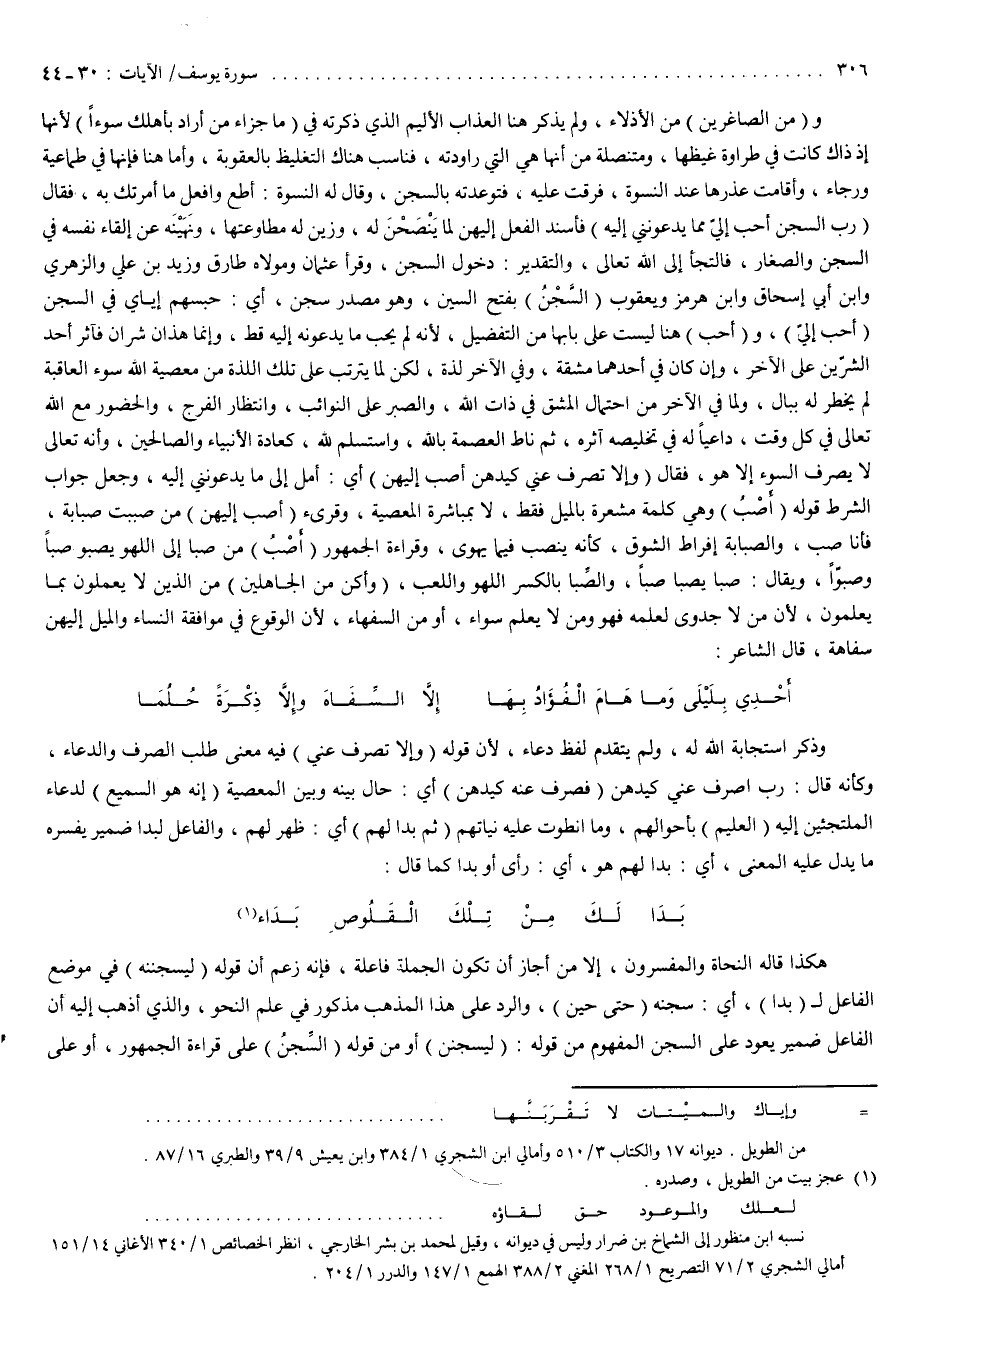 ٣٠٦ .................................................. سورة يوسف/ الآيات : ٣٠ ـ ٤٤
و ( من الصاغرين ) من الأذلاء ، ولم يذكر هنا العذاب الأليم الذي ذكرته في ( ما جزاء من أراد بأهلك سوءاً ) لأنها
إذ ذاك كانت في طراوة غيظها ، ومتنصلة من أنها هي التي راودته ، فناسب هناك التغليظ بالعقوبة ، وأما هنا فإنها في طماعية
ورجاء ، وأقامت عذرها عند النسوة ، فرقت عليه ، فتوعدته بالسجن ، وقال له النسوة : أطع وافعل ما أمرتك به ، فقال
( رب السجن أحب إليّ مما يدعونني إليه ) فأسند الفعل إليهن لما يَنْصَحْنَ له ، وزين له مطاوعتها ، ونَهَيْنَه عن إلقاء نفسه في
السجن والصغار ، فالتجأ إلى الله تعالى ، والتقدير : دخول السجن ، وقرأ عثمان ومولاه طارق وزيد بن علي والزهري
وابن أبي إسحاق وابن هرمز ويعقوب ( السَّجْنُ ) بفتح السين ، وهو مصدر سجن ، أي : حبسهم إياي في السجن
( أحب إليّ ) ، و ( أحب ) هنا ليست على بابها من التفضيل ، لأنه لم يحب ما يدعونه إليه قط ، وإنما هذان شران فآثر أحد
الشرّين على الآخر ، وإن كان في أحدهما مشقة ، وفي الآخر لذة ، لكن لما يترتب على تلك اللذة من معصية الله سوء العاقبة
لم يخطر له ببال ، ولما في الآخر من احتمال المشق في ذات الله ، والصبر على النوائب ، وانتظار الفرج ، والحضور مع الله
تعالى في كل وقت ، داعياً له في تخليصه آثره ، ثم ناط العصمة بالله ، واستسلم لله ، كعادة الأنبياء والصالحين ، وأنه تعالى
لا يصرف السوء إلا هو ، فقال ( وإلا تصرف عني كيدهن أصب إليهن ) أي : أمل إلى ما يدعونني إليه ، وجعل جواب
الشرط قوله ( أَصْبُ ) وهي كلمة مشعرة بالميل فقط ، لا بمباشرة المعصية ، وقرىء ( أصب إليهن ) من صببت صبابة ،
فأنا صب ، والصبابة إفراط الشوق ، كأنه ينصب فيما يهوى ، وقراءة الجمهور ( أَصْبُ ) من صبا إلى اللهو يصبو صباً
وصبوّا ، ويقال : صبا يصبا صباً ، والصِّبا بالكسر اللهو واللعب ، ( وأكن من الجاهلين ) من الذين لا يعملون بما
يعلمون ، لأن من لا جدوى لعلمه فهو ومن لا يعلم سواء ، أو من السفهاء ، لأن الوقوع في موافقة النساء والميل إليهن
سفاهة ، قال الشاعر :
أَحْدِي بِلَيْلَى وَمـا هَـامَ الْفُؤَادُ بِهَـا إِلَّا السِّفَـاهَ وإِلَّا ذِكْـرَةً حُـلُمَـا
وذكر استجابة الله له ، ولم يتقدم لفظ دعاء ، لأن قوله ( وإلا تصرف عني ) فيه معنى طلب الصرف والدعاء ،
وكأنه قال : رب اصرف عني كيدهن ( فصرف عنه كيدهن ) أي : حال بينه وبين المعصية ( إنه هو السميع ) لدعاء
الملتجئين إليه ( العليم ) بأحوالهم ، وما انطوت عليه نياتهم ( ثم بدا لهم ) أي : ظهر لهم ، والفاعل لبدا ضمير يفسره
ما يدل عليه المعنى ، أي : بدا لهم هو ، أي : رأى أو بدا كما قال :
بَـدَا لَـكَ مِـنْ تِلْـكَ الْقَـلُوصِ بَـدَاء(١)
هكذا قاله النحاة والمفسرون ، إلا من أجاز أن تكون الجملة فاعلة ، فإنه زعم أن قوله ( ليسجننه ) في موضع
الفاعل لـ ( بدا ) ، أي : سجنه ( حتى حين ) ، والرد على هذا المذهب مذكور في علم النحو ، والذي أذهب إليه أن
الفاعل ضمير يعود على السجن المفهوم من قوله : ( ليسجنن ) أو من قوله ( السِّجنُ ) على قراءة الجمهور ، أو على
= وإيـاك والـميْـتـات لا تَـقْـرَبَـنَّـهـا ..............................
من الطويل . ديوانه ١٧ والكتاب ٥١٠/٣ وأمالي ابن الشجري ٣٨٤/١ وابن يعيش ٣٩/٩ والطبري ٨٧/١٦ .
(١) عجز بيت من الطويل ، وصدره .
لـعـلك والمـوعـود حـق لـقـاؤه ..............................
نسبه ابن منظور إلى الشماخ بن ضرار وليس في ديوانه ، وقيل لمحمد بن بشر الخارجي ، انظر الخصائص ٣٤٠/١ الأغاني ١٥١/١٤
أمالي الشجري ٧١/٢ التصريح ٢٦٨/١ المغني ٣٨٨/٢ الهمع ١٤٧/١ والدرر ٢٠٤/١ .